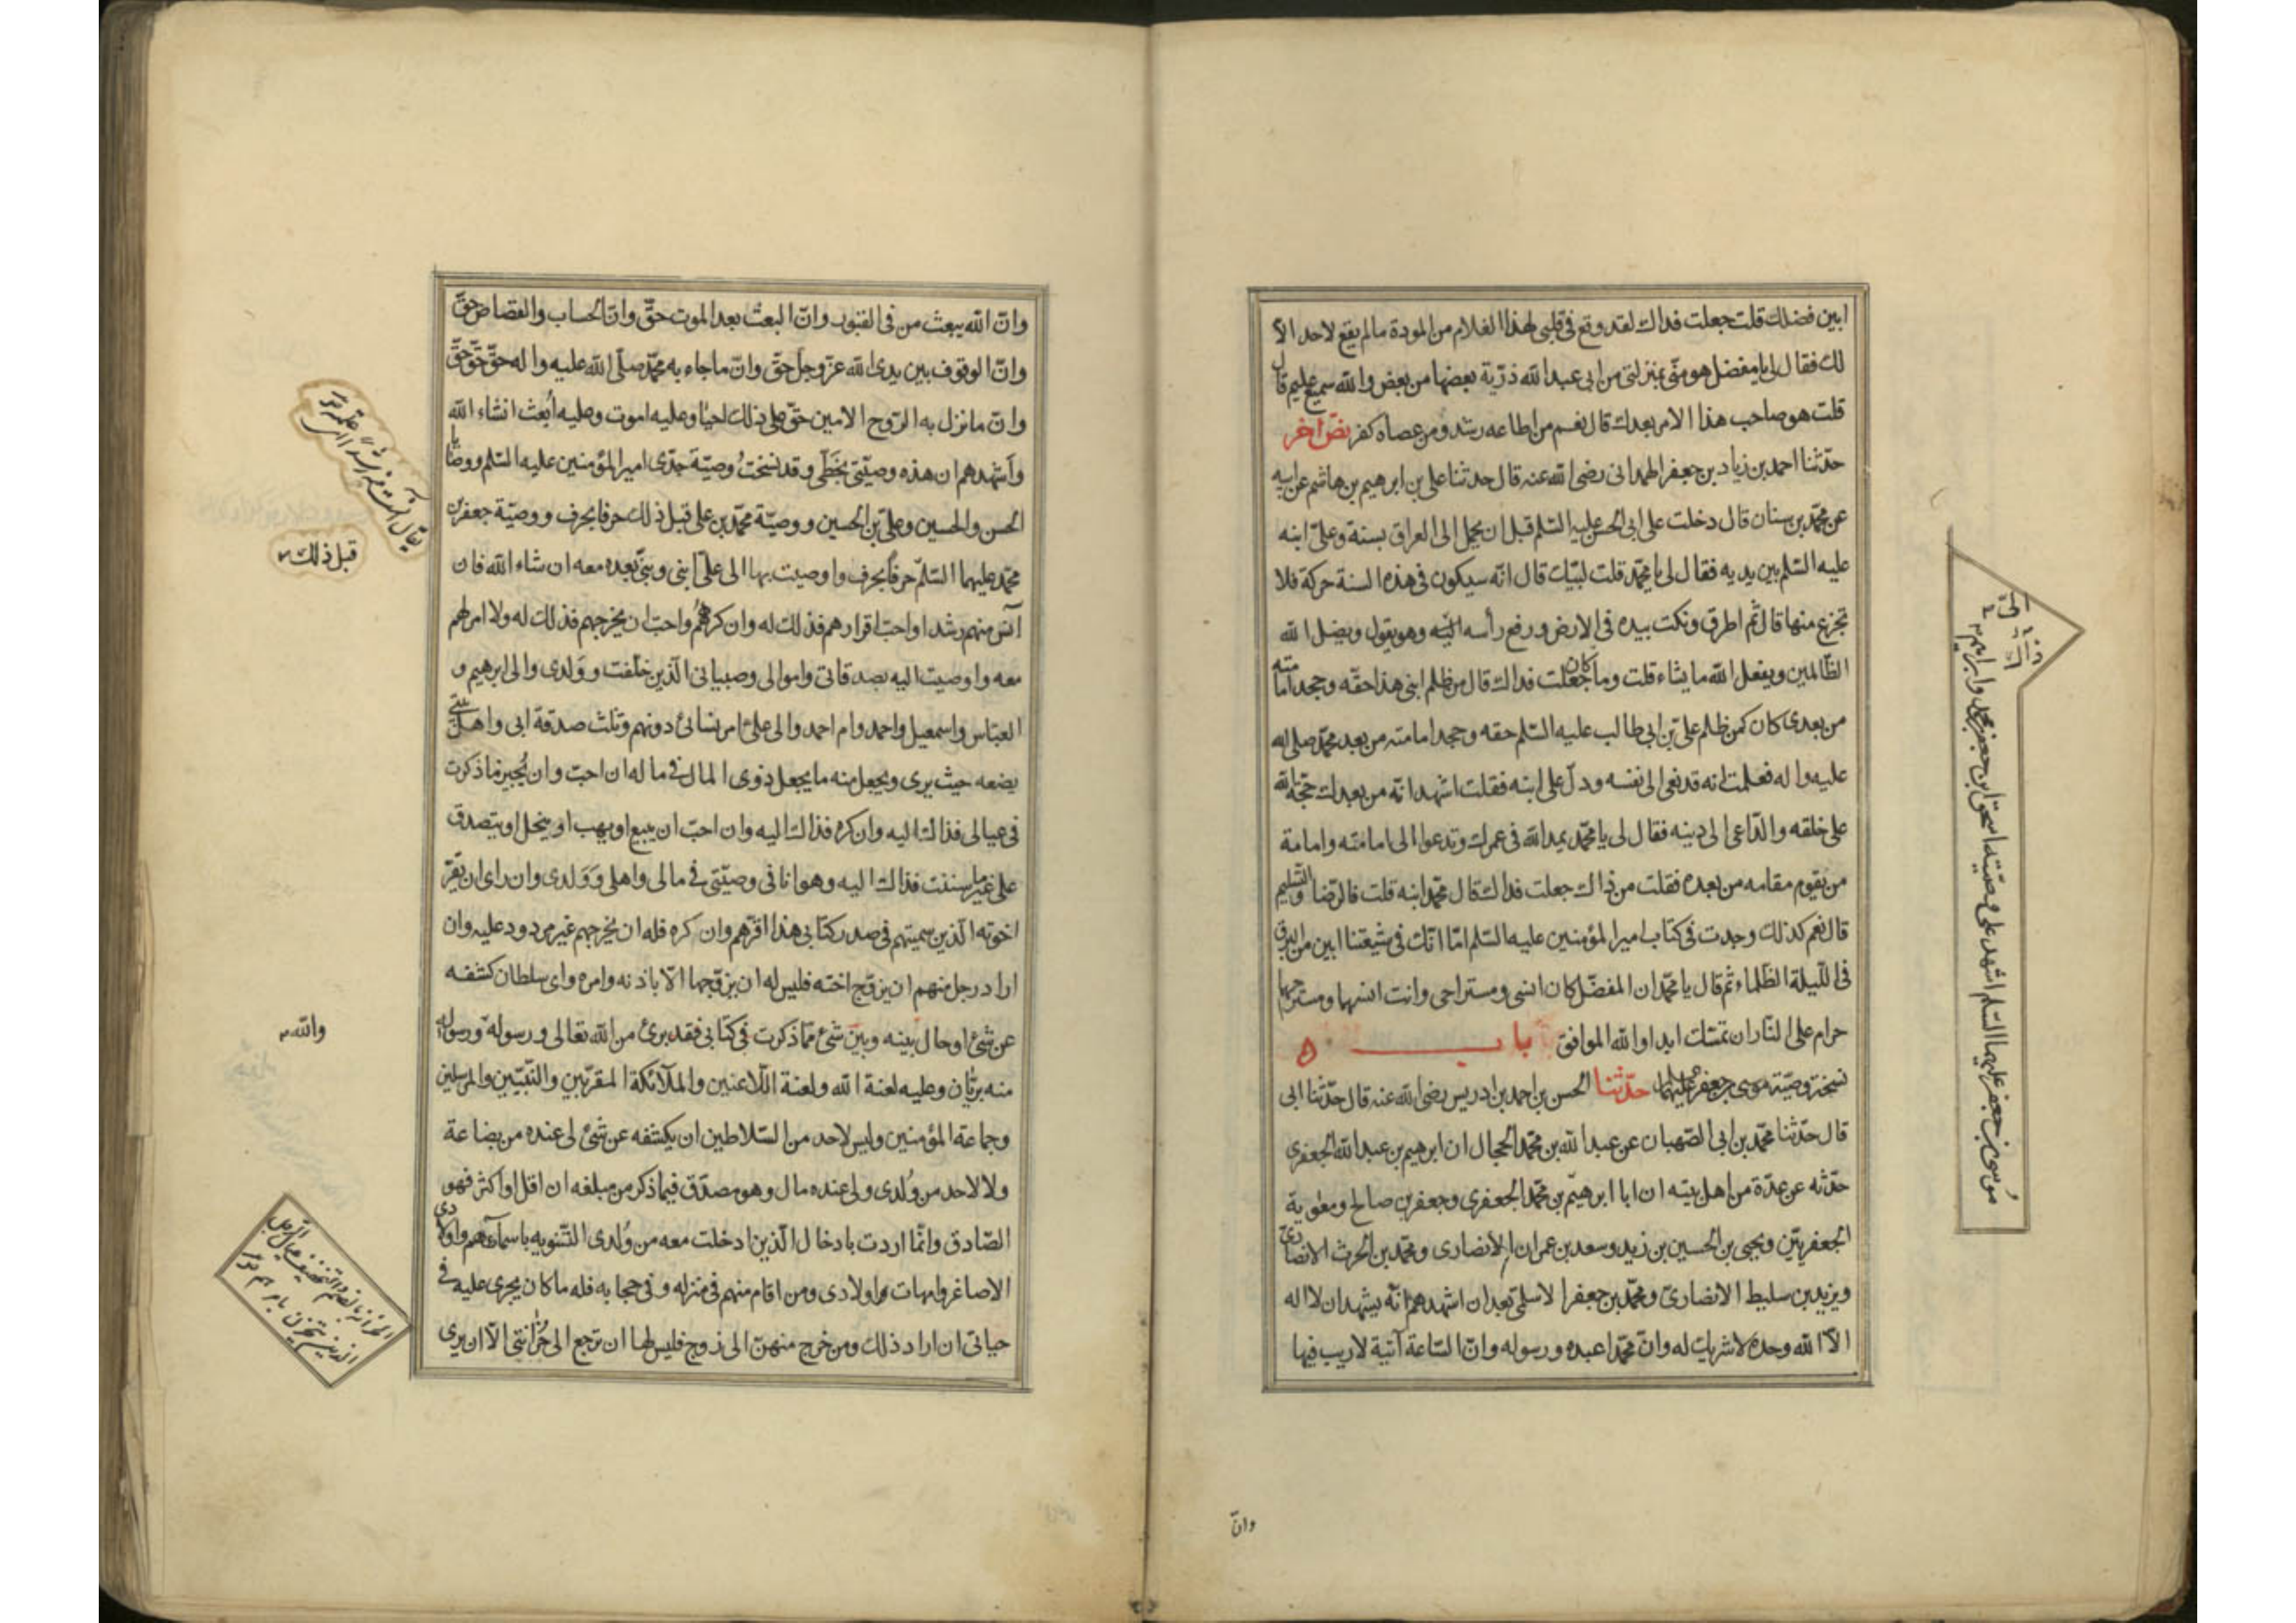 ابين فضلك قلت جعلت فداك لقد وقع فى قلبى لهذا الغلام من المودة مالم يقع لاحد الا
لك فقال لى يا مفضل هو منّى بمنزلتى من ابى عبد الله ذرّية بعضها من بعض والله سميع عليم قال
قلت هو صاحب هذا الامر بعدك قال نعم من اطاعه رشد ومن عصاه كفر نصّ اخر
حدّثنا احمد بن زياد بن جعفر الهمدانى رضى الله عنه قال حدثنا على بن ابرهيم بن هاشم عن ابيه
عن محمّد بن سنان قال دخلت على ابى الحسن عليه السّلم قبل ان يحمل الى العراق بسنة وعلىّ ابنه
عليه السّلم بين يديه فقال لى يا محمّد قلت لبّيك قال انّه سيكون فى هذه السنة حركة فلا
تجزع منها قال ثم اطرق ونكت بيده فى الارض ورفع رأسه الىّ وهو يقول ويضل الله
الظّالمين ويفعل الله ما يشاء قلت وما كان جعلت فداك قال من ظلم ابنى هذا حقّه وجحد امامته
من بعدى كان كمن ظلم علىّ بن ابى طالب عليه السّلم حقه وجحد امامته من بعد محمّد صلى الله
عليه واله فعلمت انه قد نعى الى نفسه ودلّ على ابنه فقلت اشهد انّه من بعدك حجّة الله
على خلقه والدّاعى الى دينه فقال لى يا محمّد يمد الله فى عمرك وتدعوا الى امامته وامامة
من يقوم مقامه من بعده فقلت من ذاك جعلت فداك قال محمّد ابنه قلت فالرّضا والتّسليم
قال نعم كذلك وجدت فى كتاب امير المؤمنين عليه السّلم امّا انّك فى شيعتنا ابين من البرق
فى اللّيلة الظّلماء ثم قال يا محمّد ان المفضّل كان انسى ومستراحى وانت انسهما ومستراحهما
حرام على النّار ان تمسّك ابدا والله الموافق باب ٥
نسخة وصيّة موسى بن جعفر عليهما حدّثنا الحسن بن احمد بن ادريس رضى الله عنه قال حدّثنا ابى
قال حدّثنا محمّد بن ابى الصّهبان عن عبد الله بن محمّد الحجال ان ابرهيم بن عبد الله الجعفرى
حدّثه عن عدّة من اهل بيته ان ابا ابرهيم بن محمّد الجعفرى وجعفر بن صالح ومعوية
الجعفريّين ويحيى بن الحسين بن زيد وسعد بن عمران الانصارى ومحمّد بن الحرث الانصارىّ
ويزيد بن سليط الانصارىّ ومحمّد بن جعفر الاسلمى بعد ان اشهدهم انّه يشهد ان لا اله
الّا الله وحده لا شريك له وانّ محمّدا عبده ورسوله وانّ السّاعة آتية لا ريب فيها
موسى بن جعفر عليهما السّلم اشهد على وصيّته اسحق ابن جعفر بن محمّد وابراهيم
وانّ
وانّ الله يبعث من فى القبور وانّ البعث بعد الموت حقّ وانّ الحساب والقصاص حقّ
وانّ الوقوف بين يدى الله عزّ وجل حقّ وانّ ما جاء به محمّد صلّى الله عليه واله حقّ حقّ حقّ
وانّ ما نزل به الرّوح الامين حقّ على ذلك احيا وعليه اموت وعليه أبعث انشاء الله
وأشهدهم ان هذه وصيّتى بخطّى وقد نسخت وصيّة جدّى امير المؤمنين عليه السّلم ووصايا
الحسن والحسين وعلىّ بن الحسين ووصيّة محمّد بن على قبل ذلك حرفا بحرف ووصيّة جعفر بن
محمّد عليهما السّلم حرفا بحرف واوصيت بها الى علىّ ابنى وبنىّ بعده معه ان شاء الله فان
آنس منهم رشدا واحبّ اقرارهم فذلك له وان كرههم واحبّ ان يخرجهم فذلك له ولا امر لهم
معه واوصيت اليه بصدقاتى واموالى وصبيانى الّذين خلّفت ووَلدى والى ابرهيم و
العبّاس واسمعيل واحمد وام احمد والى علىّ امر نسائى دونهم وثلث صدقة ابى واهل بيتى
يضعه حيث يرى ويجعل منه ما يجعل ذوى المال فى ماله ان احبّ وان يُجيز ما ذكرت
فى عيالى فذاك اليه وان كره فذاك اليه وان احبّ ان يبيع او يهب او ينحل او يتصدق
على غير ما سننت فذاك اليه وهو انا فى وصيّتى فى مالى واهلى ووَلدى وان راى ان يقرّ
اخوته الّذين سميتهم فى صدر كتابى هذا اقرّهم وان كره فله ان يخرجهم غير مردود عليه وان
اراد رجل منهم ان يزوّج اخته فليس له ان يزوّجها الّا باذنه وامره واى سلطان كشفه
عن شئ او حال بينه وبين شئ ممّا ذكرت فى كتابى فقد برئ من الله تعالى ورسوله ورسوله
منه بريّان وعليه لعنة الله ولعنة اللّاعنين والملائكة المقرّبين والنّبيّين والمرسلين
وجماعة المؤمنين وليس لاحد من السّلاطين ان يكشفه عن شئ لى عنده من بضاعة
ولا لاحد من وُلدى ولى عنده مال وهو مصدّق فيما ذكر من مبلغه ان اقل او اكثر فهو
الصّادق وانّما اردت بادخال الّذين ادخلت معه من وُلدى التّنويه باسمائهم واولادى
الاصاغر وامهات اولادى ومن اقام منهم فى منزله وفى حجابه فله ما كان يجرى عليه فى
حياتى ان اراد ذلك ومن خرج منهنّ الى زوج فليس لها ان ترجع الى حُزانتى الّا ان يرى
قبل ذلك
والله